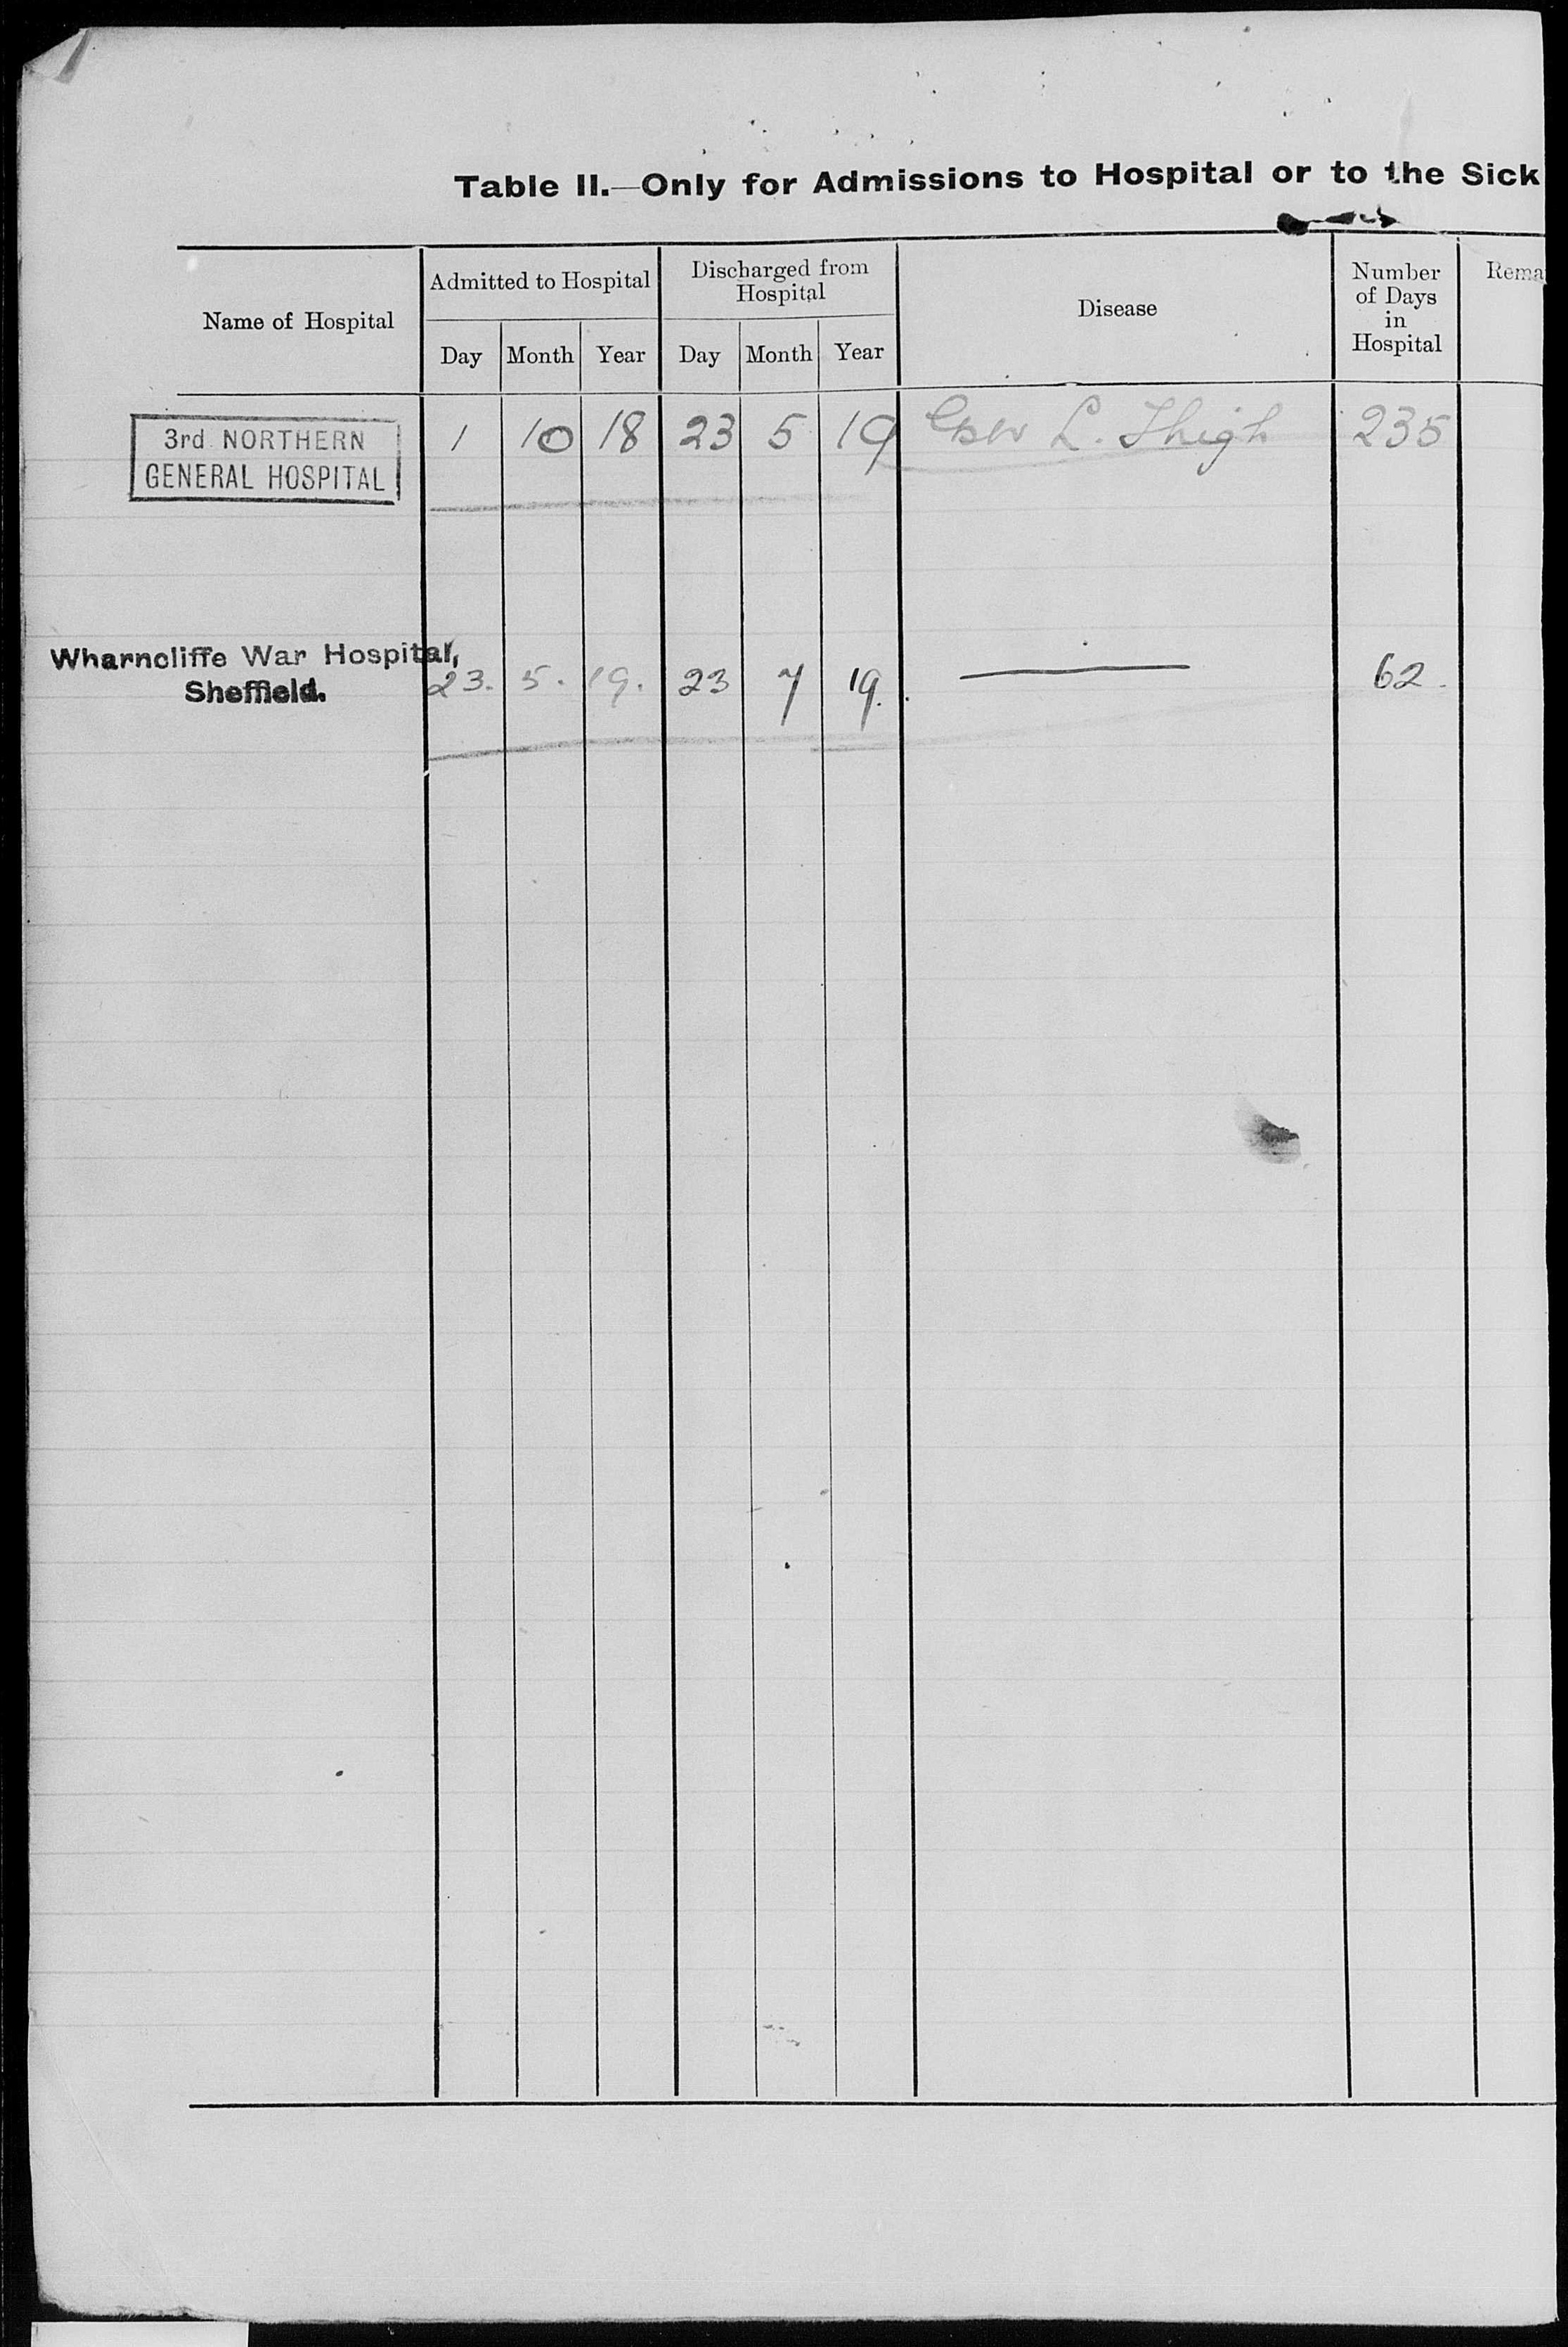 Table II.—Only for Admissions to Hospital or to the Sick
Name of Hospital
Admitted to Hospital
Discharged from
Hospital
Disease
Number
of Days
in
Hospital
Rema
Day Month Year Day Month Year
3rd NORTHERN
GENERAL HOSPITAL
1 10 18 23 5 19 GSW L. Thigh 235
Wharncliffe War Hospital,
Sheffield.
23. 5. 19. 23 7 19. 62.